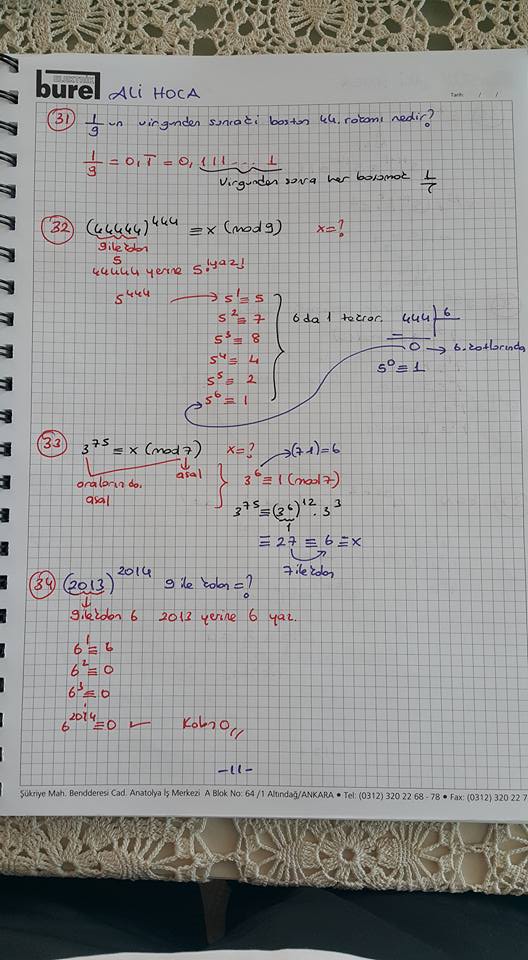 ELEKTRİK
burel ALİ HOCA
Tarih: / /
31 1/9 un virgünden sonraki baştan 44. rakamı nedir?
1/9 = 0,1̅ = 0,111...1
Virgünden sonra her basamak 1
32 (44444)^444 ≡ x (mod 9) x=?
9 ile kalan
5
44444 yerine 5 yaz!
5^444 → 5^1 ≡ 5
5^2 ≡ 7
5^3 ≡ 8
5^4 ≡ 4
5^5 ≡ 2
5^6 ≡ 1
6 da 1 tekrar.
444 | 6
0 → 6. katlarında
5^0 ≡ 1
33 3^75 ≡ x (mod 7) x=?
asal
araların da
asal
(7-1)=6
3^6 ≡ 1 (mod 7)
3^75 ≡ (3^6)^12 . 3^3
1
≡ 27 ≡ 6 ≡ x
7 ile kalan
34 (2013)^2014 9 ile kalan=?
9 ile kalan 6 2013 yerine 6 yaz.
6^1 ≡ 6
6^2 ≡ 0
6^3 ≡ 0
6^2014 ≡ 0 Kalan 0//
-11-
Şükriye Mah. Bendderesi Cad. Anatolya İş Merkezi A Blok No: 64 /1 Altındağ/ANKARA • Tel: (0312) 320 22 68 - 78 • Fax: (0312) 320 22 7